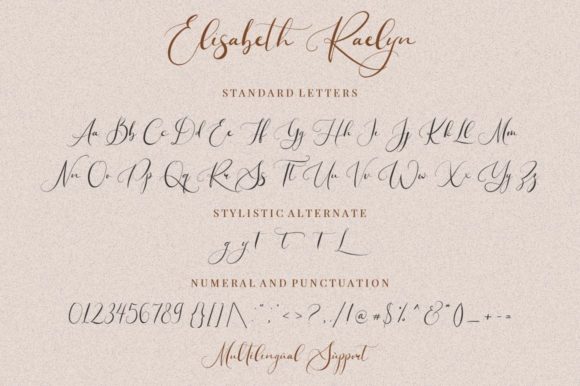 Elisabeth Raelyn
STANDARD LETTERS
Aa Bb Cc Dd Ee Ff Gg Hh Ii Jj Kk Ll Mm
Nn Oo Pp Qq Rr Ss Tt Uu Vv Ww Xx Yy Zz
STYLISTIC ALTERNATE
g y t t t L
NUMERAL AND PUNCTUATION
0123456789 {}[]|\ : " ; ' <> ? , . / ! @ # $ % ^ & * () _ + - =
Multilingual Support